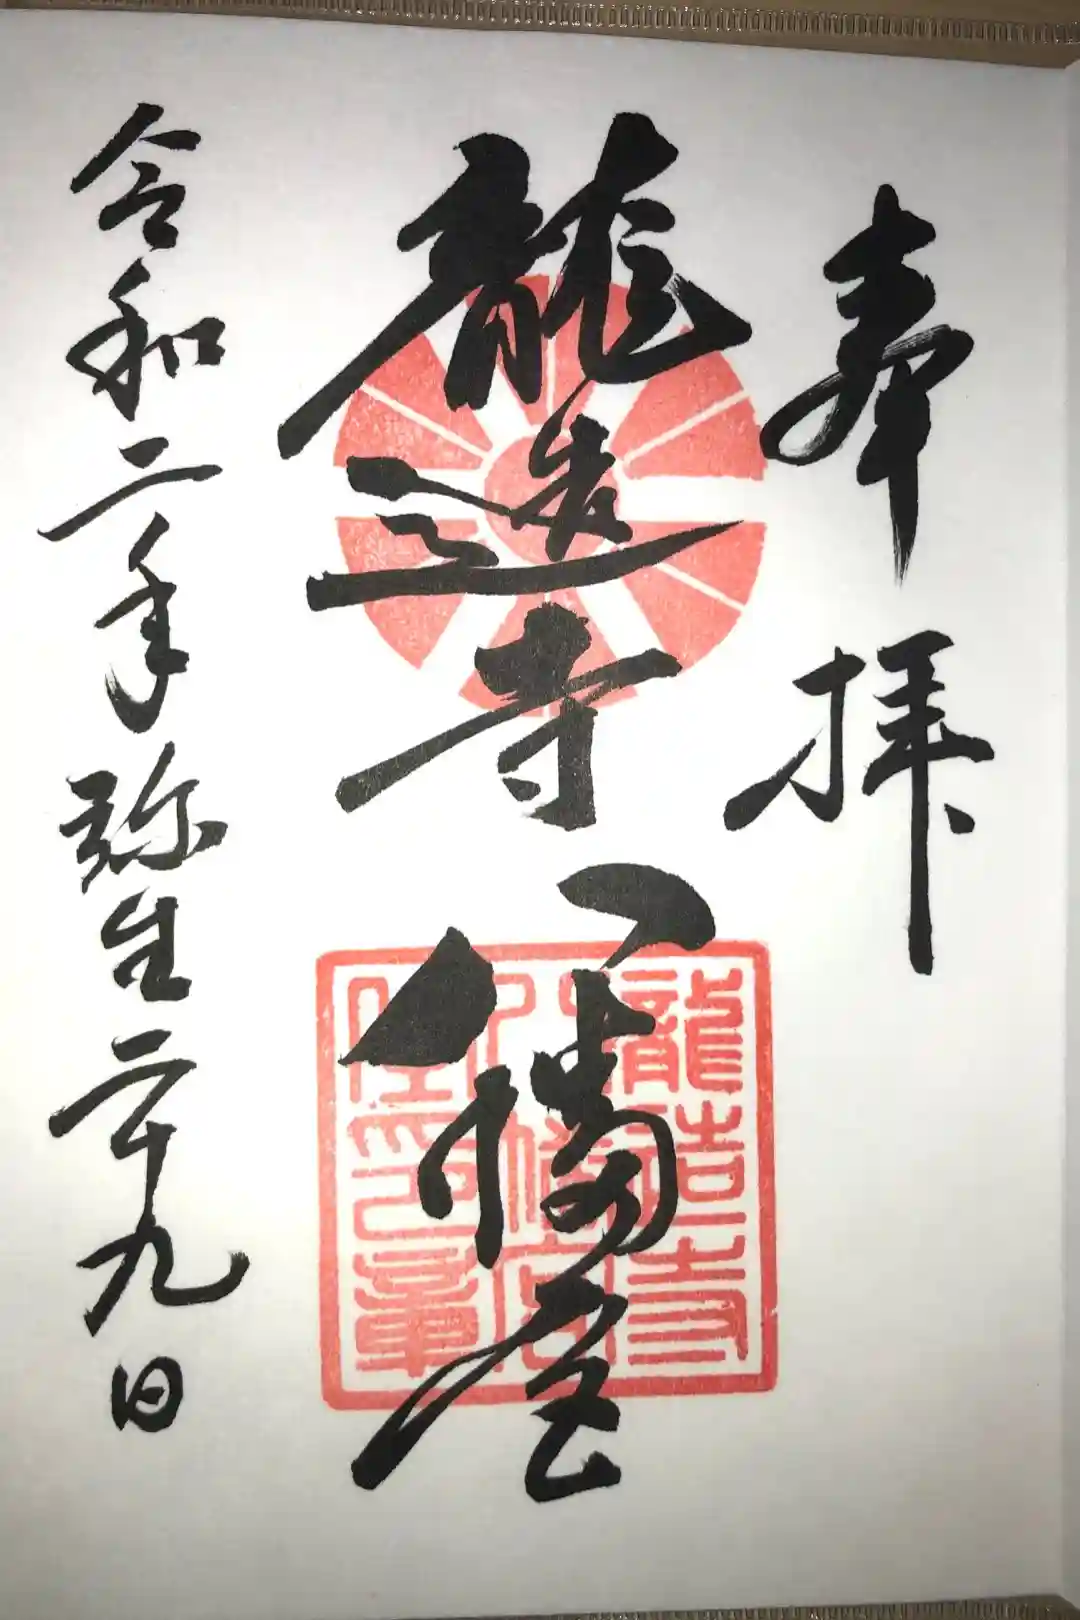 奉拝
龍造寺八幡宮
令和二年弥生二十九日
龍造寺
八幡宮